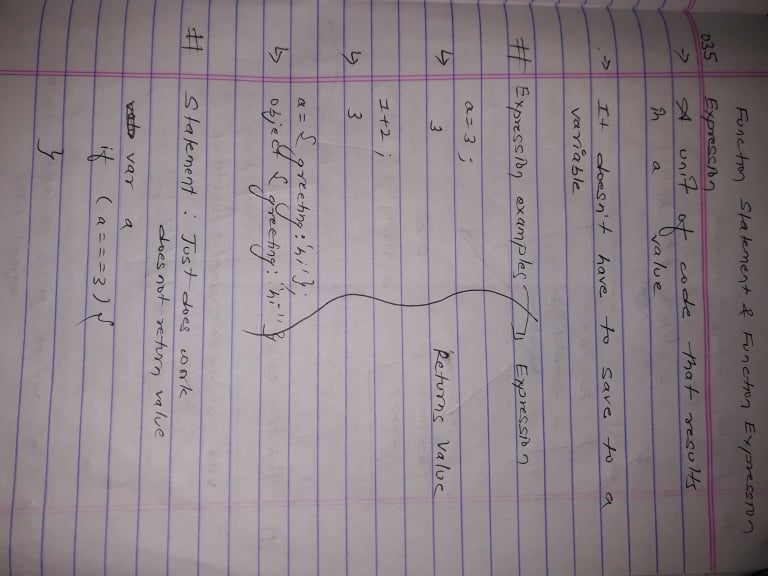 Function Statement & Function Expression
035 Expression
→ A unit of code that results
in a value
.→ It doesn't have to save to a
variable
# Expression examples → Expression
a = 3 ;
↳ 3 Returns Value
1+2 ;
↳ 3
a = { greeting: 'hi' };
↳ object { greeting: "hi" }
# Statement : Just does work
does not return value
var a
if (a===3) {
}